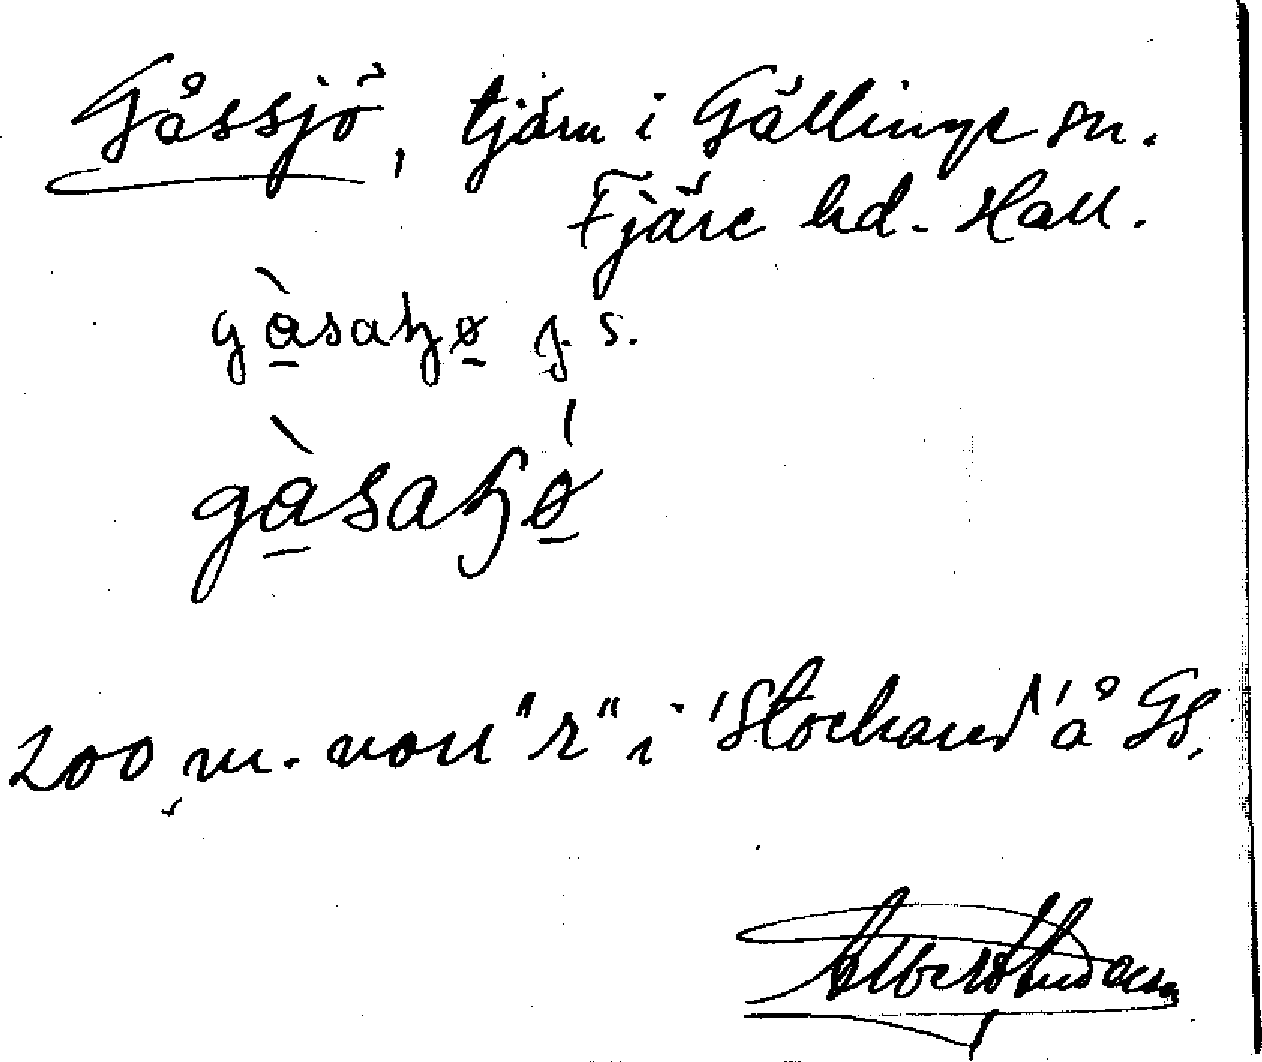 Gåssjö, tjärn i Gällinge sn.
Fjäre hd. Hall.
gàsaʦø̱ g. s.
gàsaʦǿ̱
200 m. norr "r" i 'Stockared' å GS.
Albert Andersson